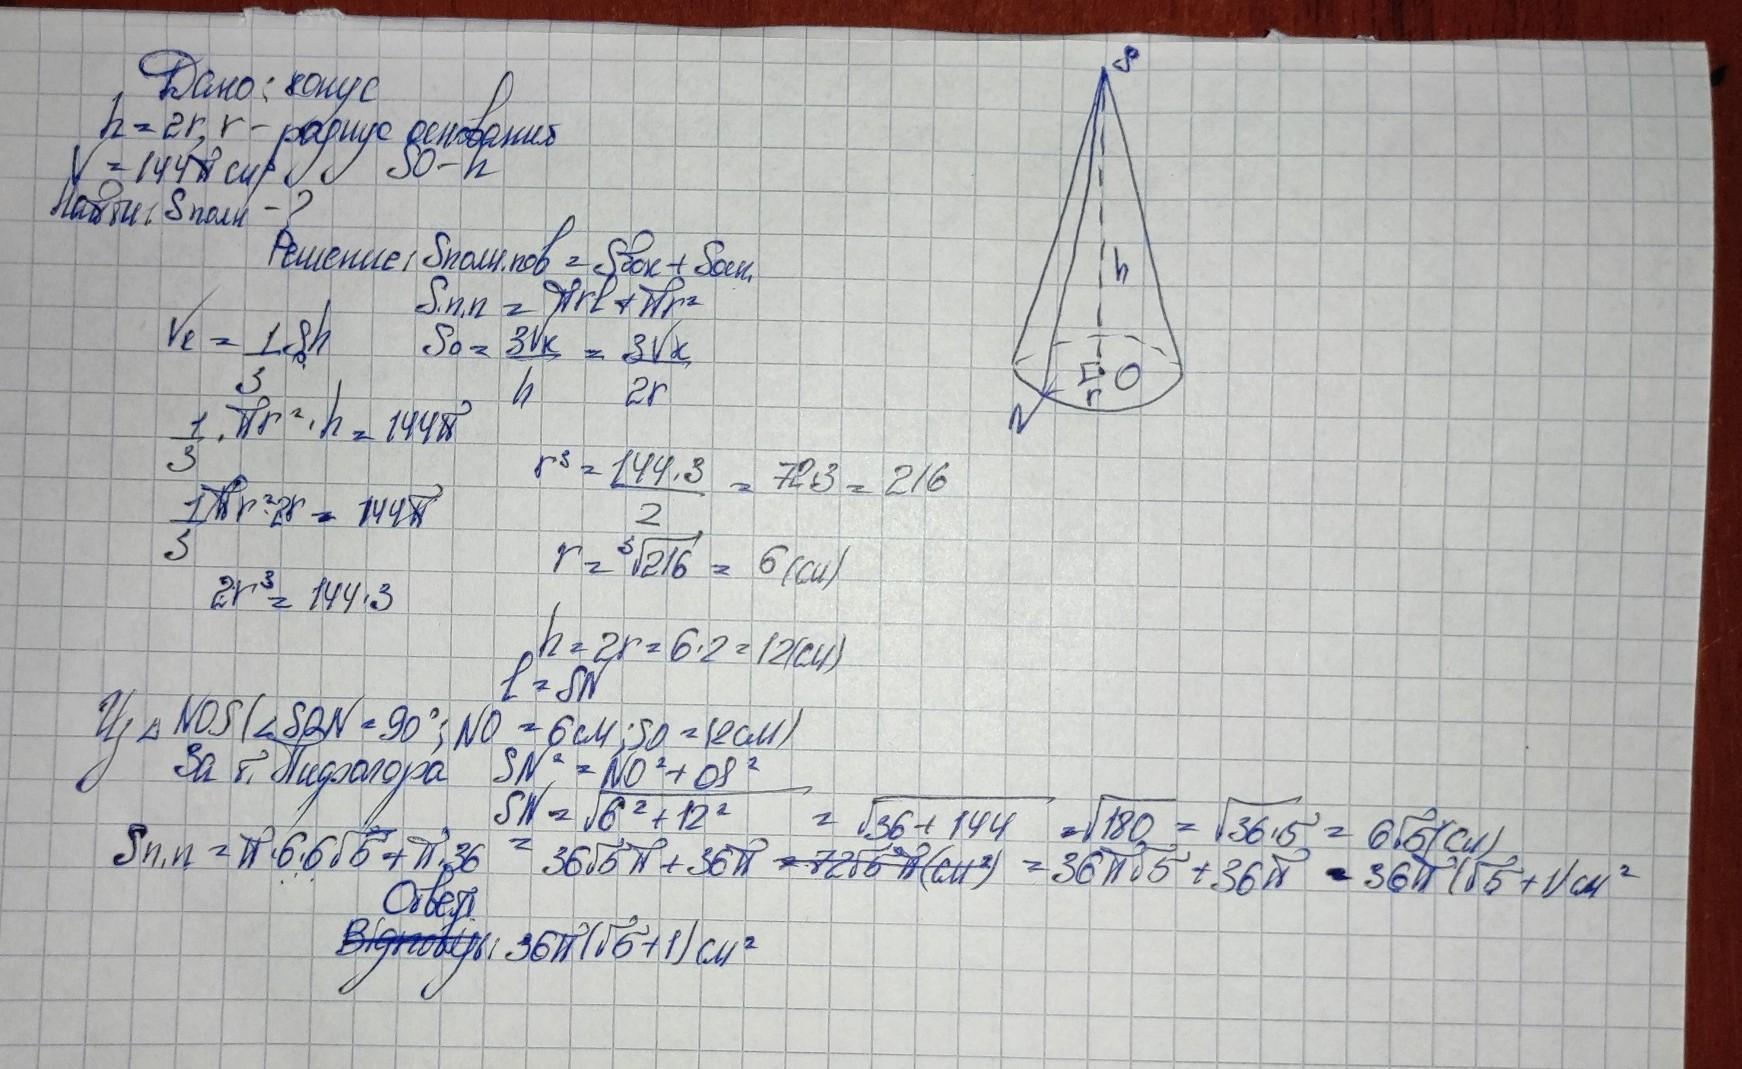 Дано: конус
h = 2r, r - радиус основания
V = 144π см³ SO - h
Найти: Sполн - ?
Решение: Sполн.пов = Sбок + Sосн.
S.п.п = πrl + πr²
Vк = 1/3 Sh Sо = 3Vк/h = 3Vк/2r
1/3 · πr² · h = 144π
r³ = 144·3/2 = 72·3 = 216
1/3 πr²·2r = 144π
r = ³√216 = 6 (см)
2r³ = 144·3
h = 2r = 6·2 = 12(см)
l = SN
Из △ NOS (∠SON = 90°; NO = 6см; SO = 12см)
За т. Пифагора SN² = NO² + OS²
SN = √6² + 12² = √36 + 144 = √180 = √36·5 = 6√5 (см)
Sп.п = π·6·6√5 + π·36 = 36√5π + 36π = 72√5π(см²) = 36π√5 + 36π = 36π(√5 + 1) см²
Ответ
Відповідь: 36π(√5 + 1) см²
S
h
O
r
N